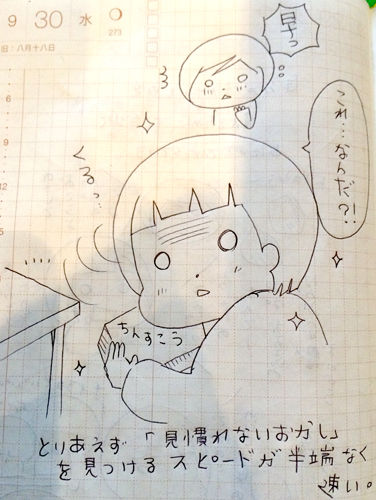 9 30 水
273
旧:八月十八日
6
9
12
早っ
これ…なんだ?!
くるっ…
ちんすこう
とりあえず「見慣れないおかし」
を見つけるスピードが半端なく
速い。